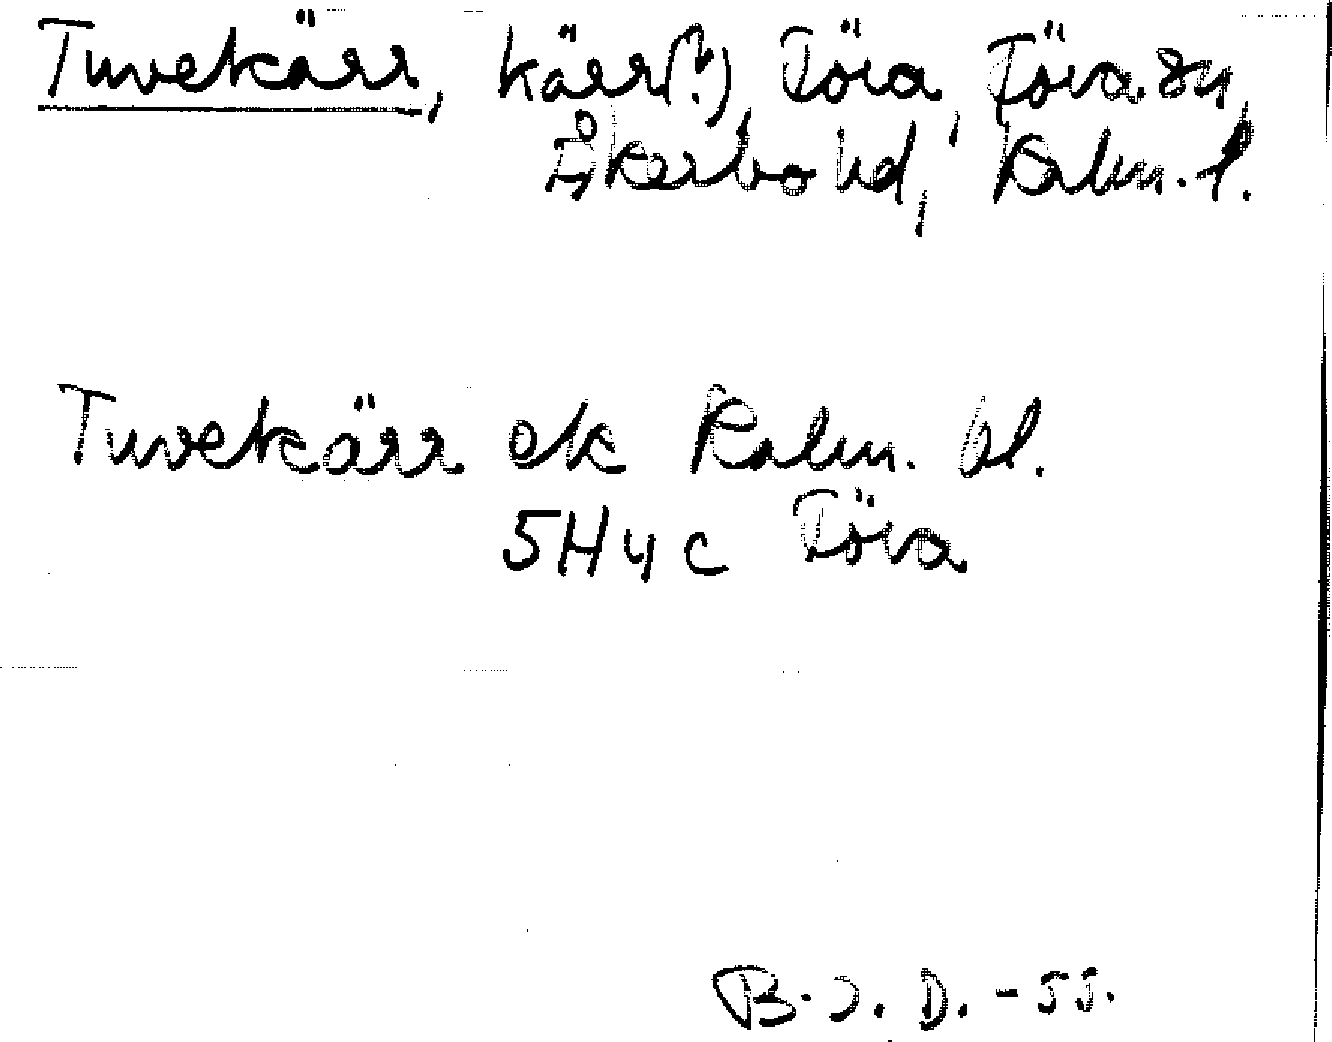 Tuvekärr, kärr(?), Föra, Föra sn,
Åkerbo hd, Kalm. l.
Tuvekärr ek Kalm. bl.
5H4c Föra
B. J. D. - 55.